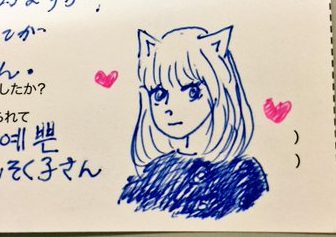 てか
ん.
したか?
られて
예쁜
そく子さん
)
)